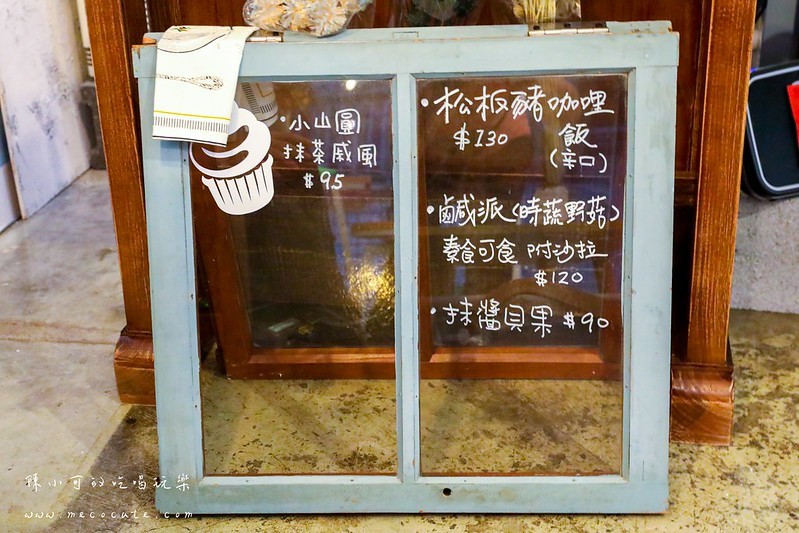 •小山園
抹茶戚風
$95
•松板豬咖哩
$130 飯
(辛口)
•鹹派(時蔬野菇)
素食可食 附沙拉
$120
•抹醬貝果 $90
陳小可的吃喝玩樂
www.mecocute.com